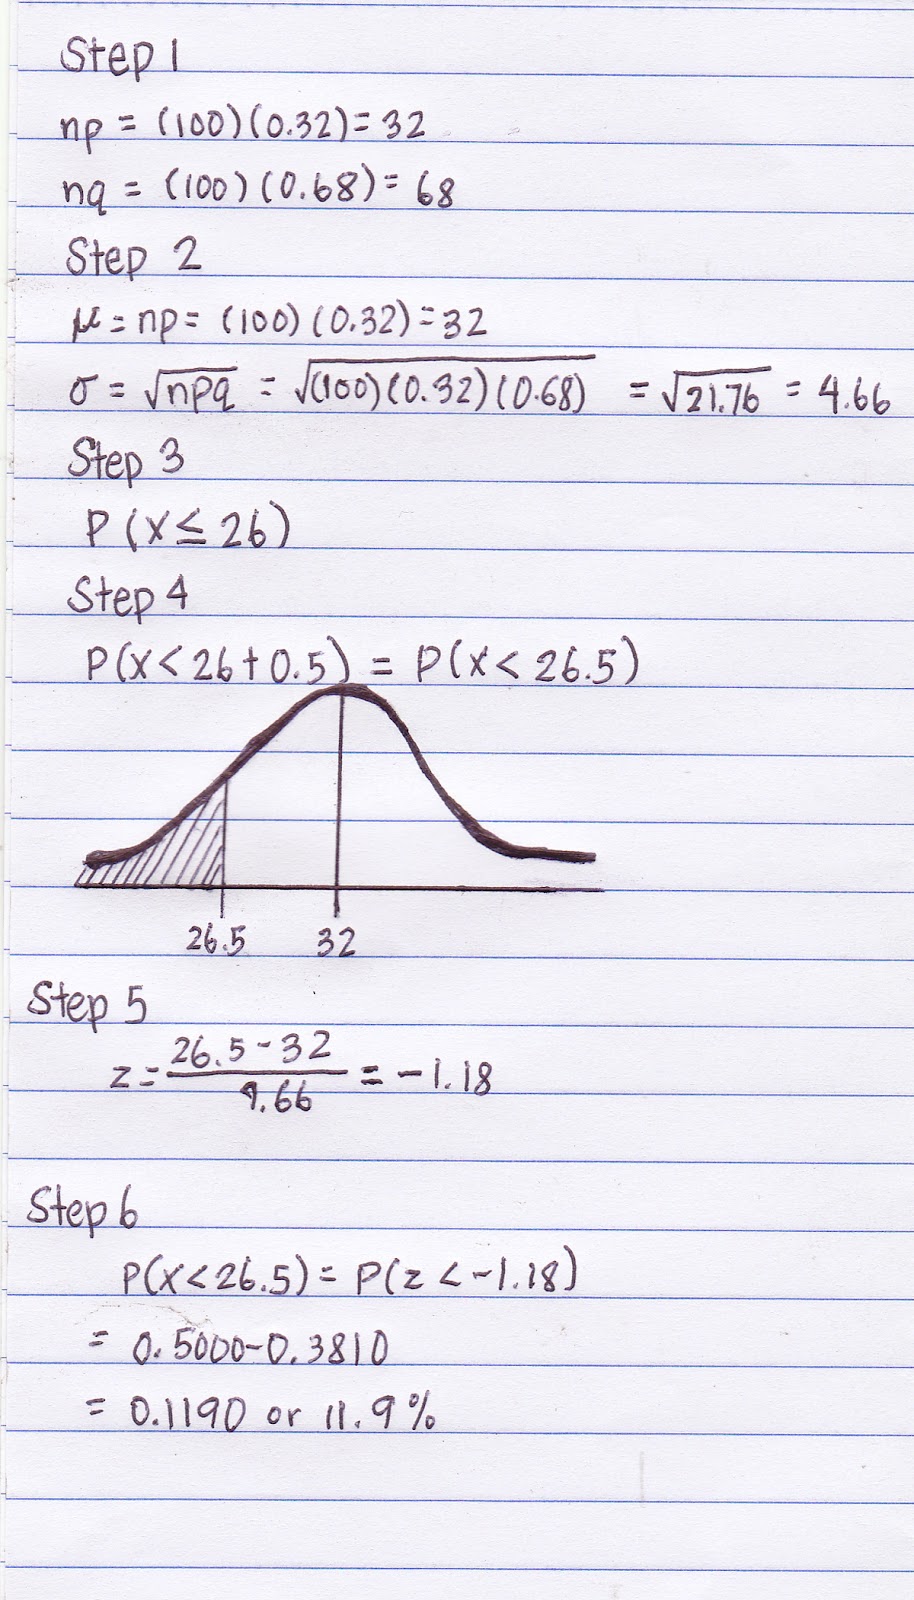 Step 1
np = (100)(0.32)= 32
nq = (100)(0.68)= 68
Step 2
μ = np = (100)(0.32)=32
σ = √npq = √(100)(0.32)(0.68) = √21.76 = 4.66
Step 3
P(x ≤ 26)
Step 4
P(x < 26+0.5) = P(x < 26.5)
26.5 32
Step 5
z = 26.5-32 / 4.66 = -1.18
Step 6
P(x < 26.5) = P(z < -1.18)
= 0.5000-0.3810
= 0.1190 or 11.9%